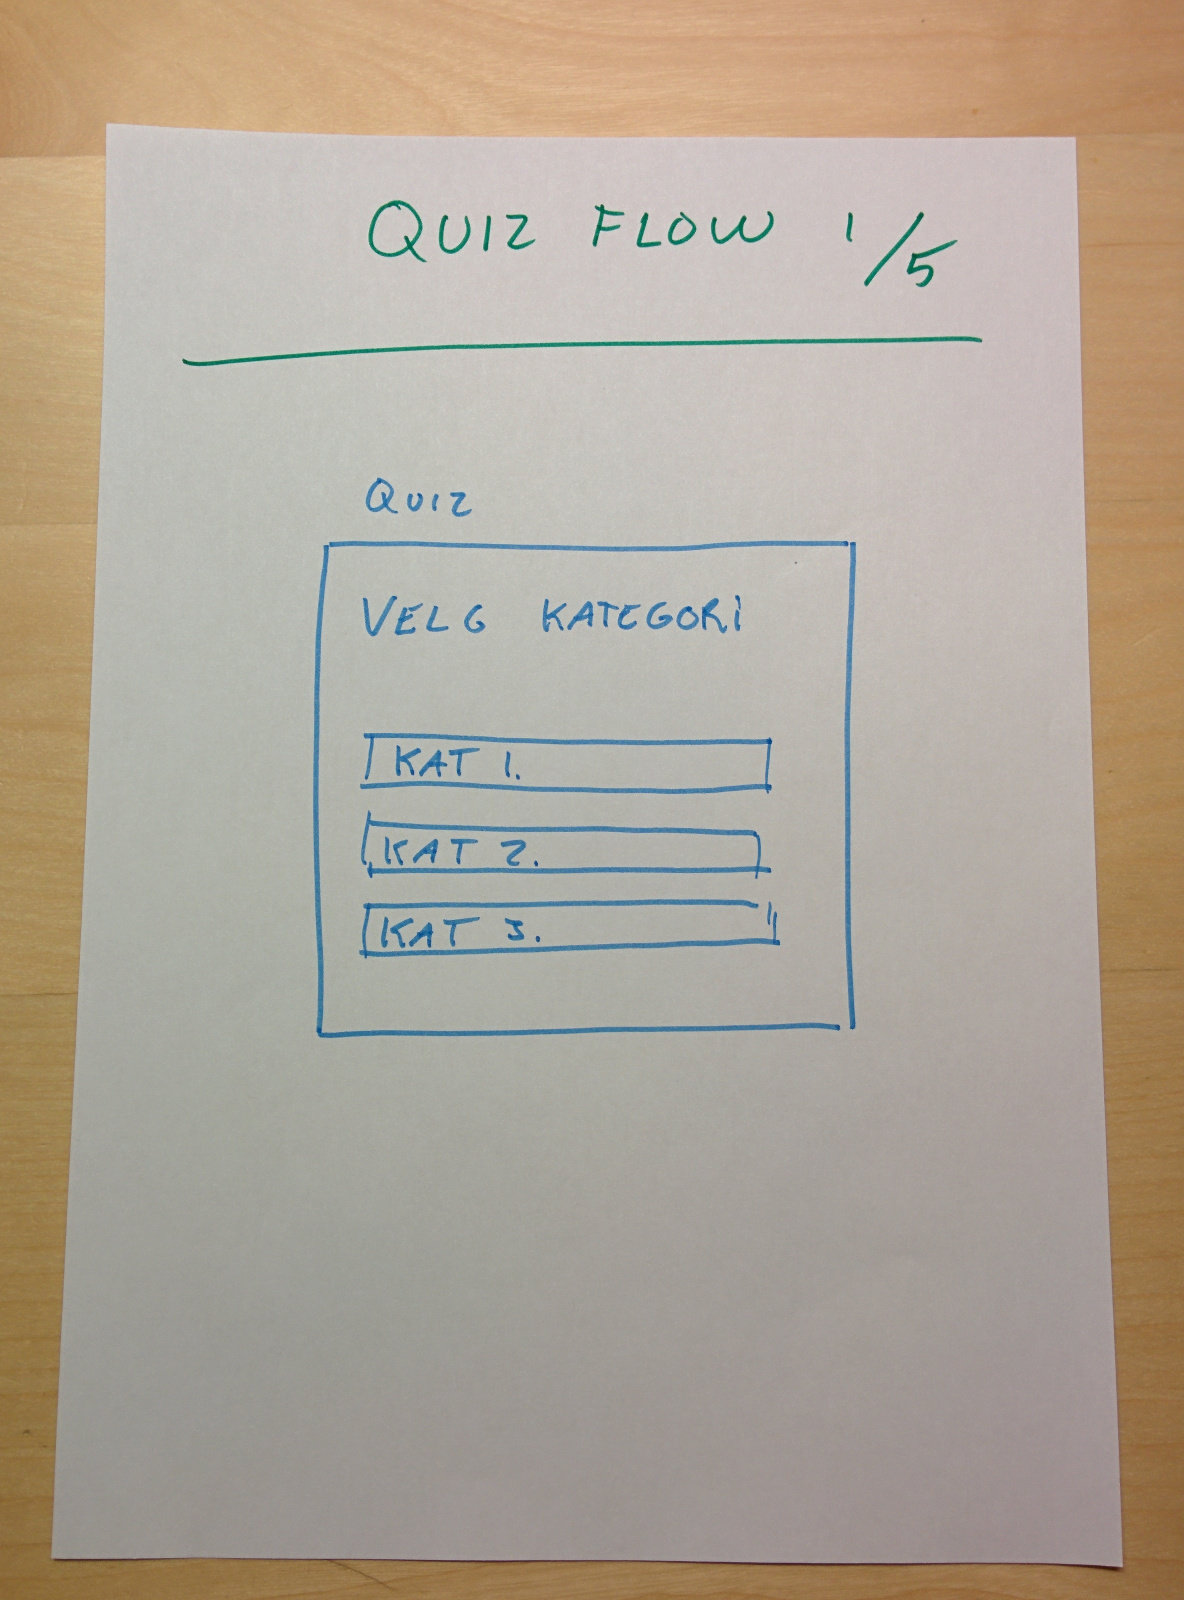 QUIZ FLOW 1/5
QUIZ
VELG KATEGORI
KAT 1.
KAT 2.
KAT 3.